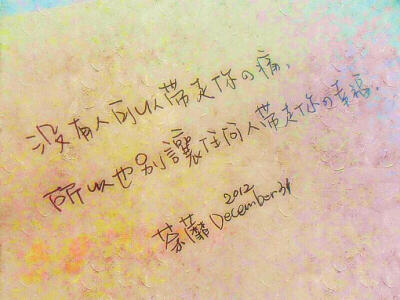 没有人可以带走你の痛、
所以也别讓任何人带走你の幸福.
2012
荼蘼 December 31